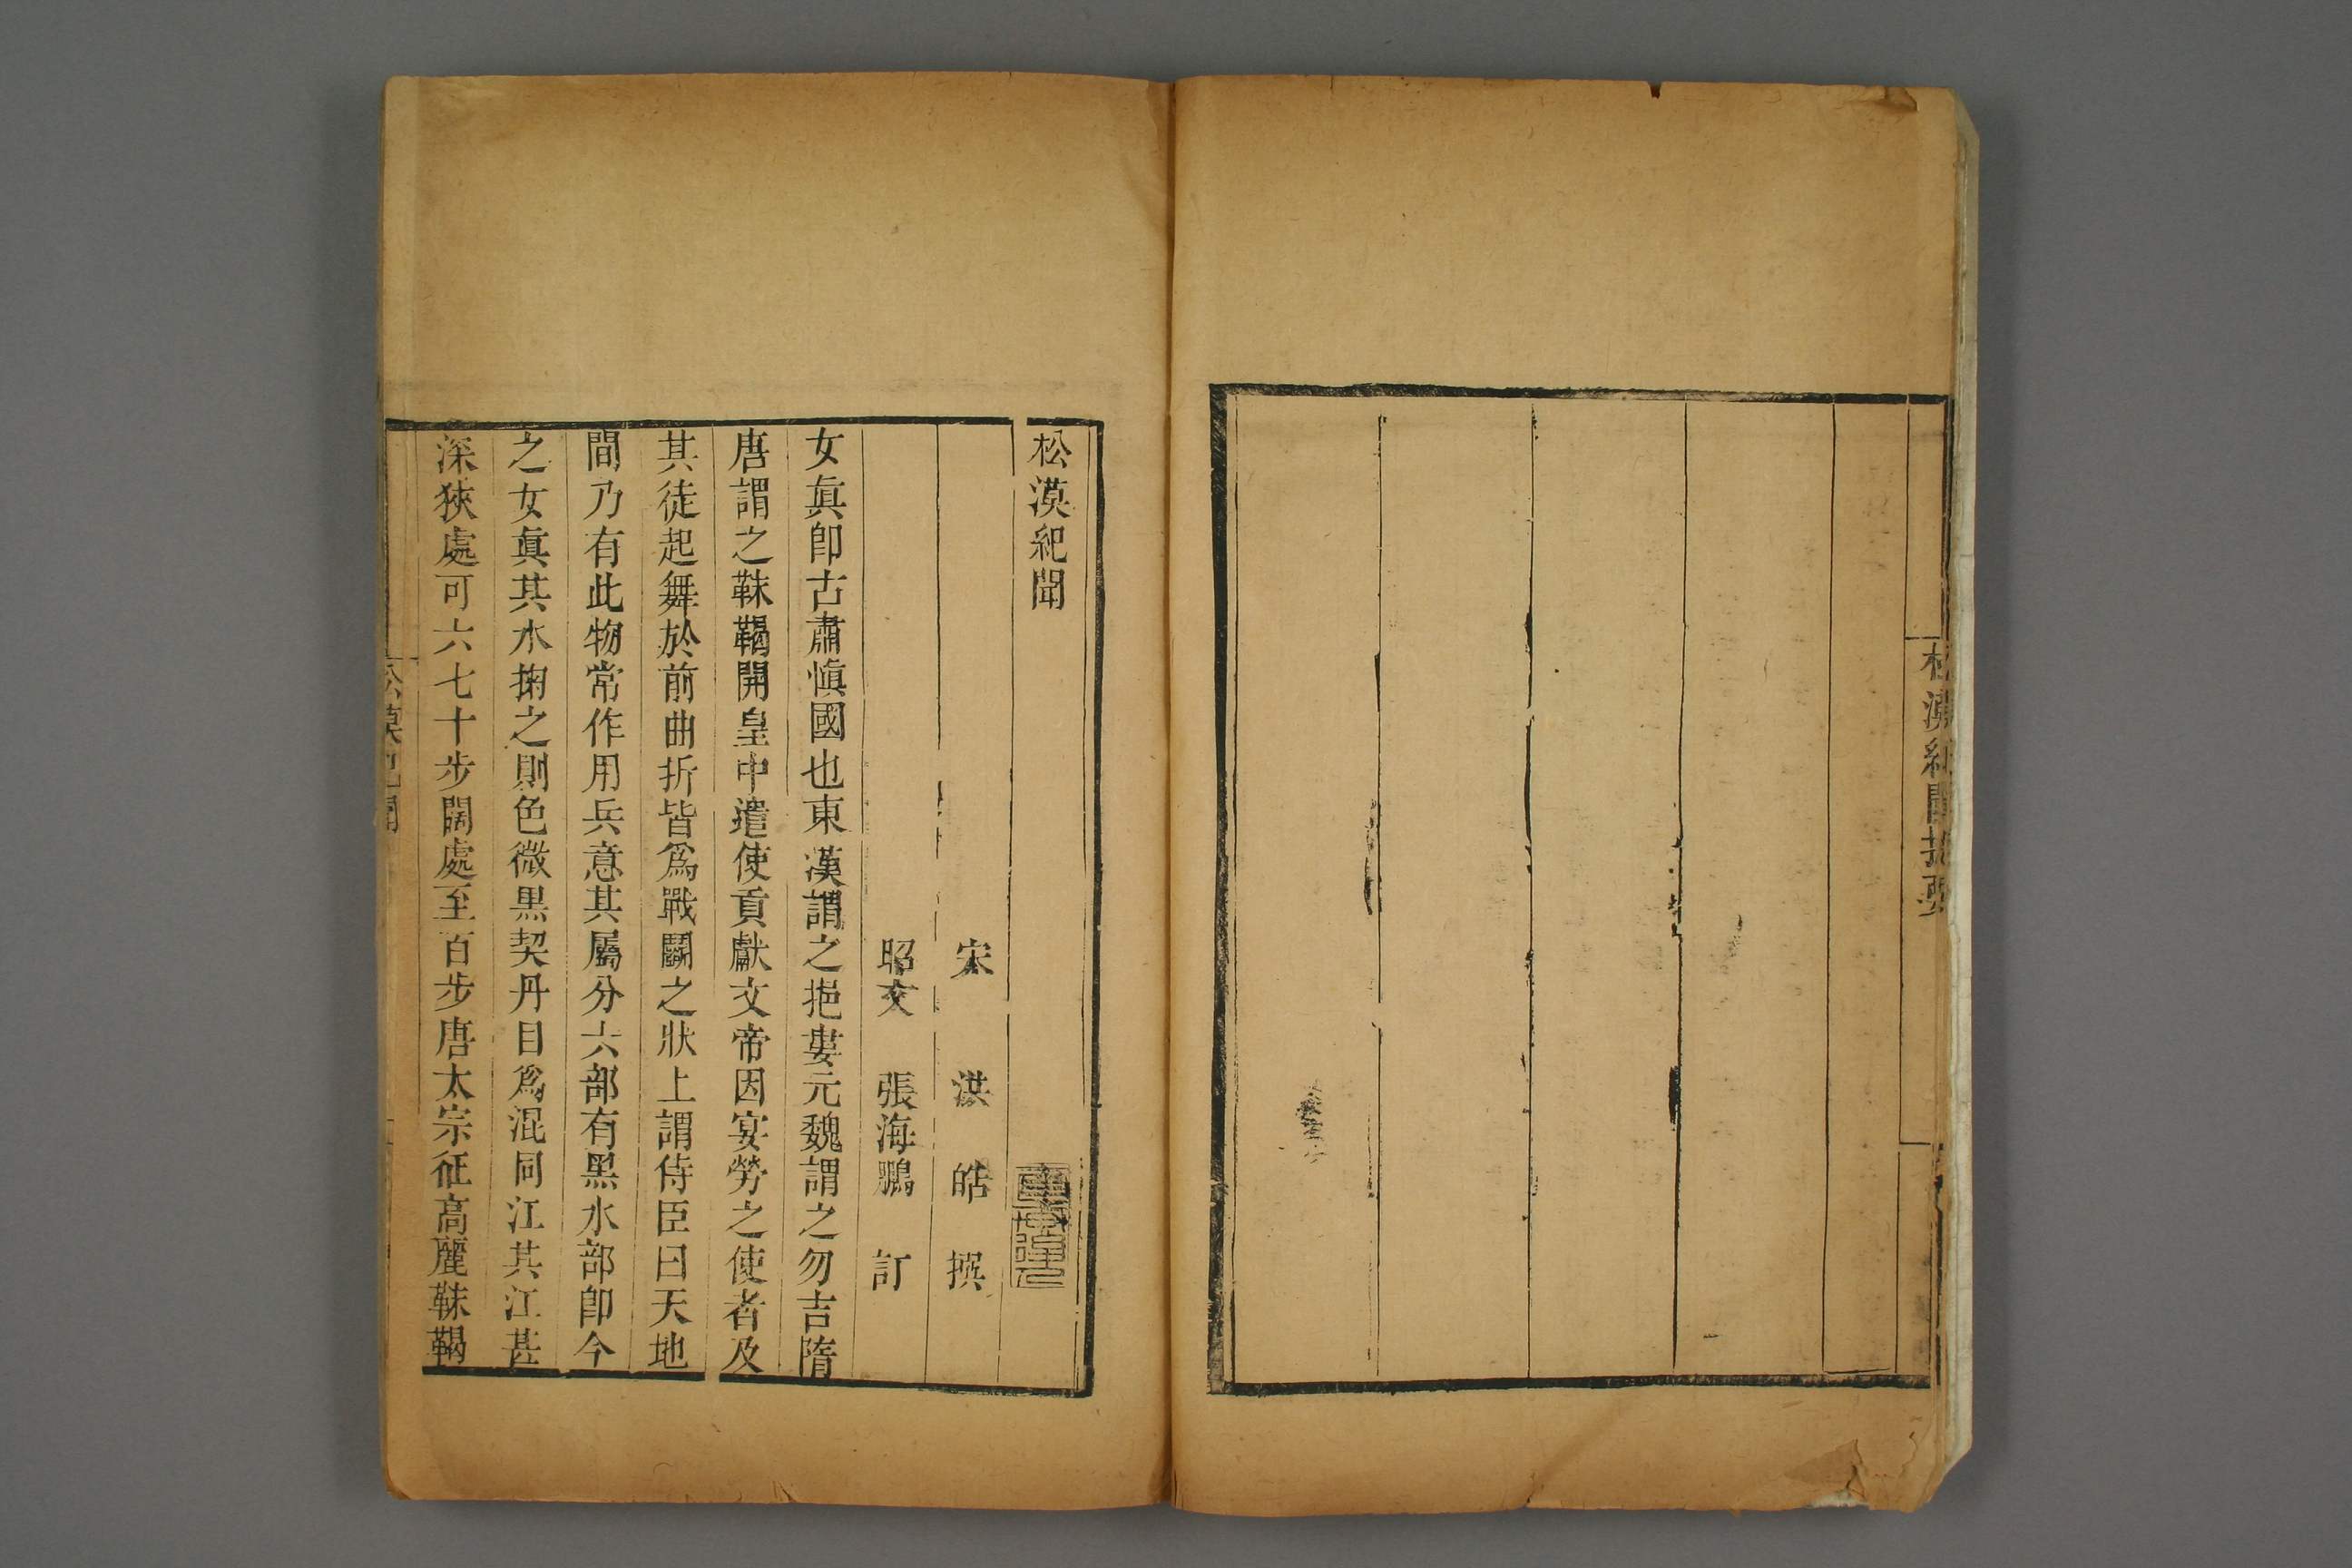 松漠紀聞提要
松漠紀聞
宋　洪　皓　撰
昭文　張海鵬　訂
女眞卽古肅愼國也東漢謂之挹婁元魏謂之勿吉隋
唐謂之靺鞨開皇中遣使貢獻文帝因宴勞之使者及
其徒起舞於前曲折皆爲戰鬭之狀上謂侍臣曰天地
間乃有此物常作用兵意其屬分六部有黑水部卽今
之女眞其水掬之則色微黑契丹目爲混同江其江甚
深狹處可六七十步闊處至百步唐太宗征高麗靺鞨
松漠紀聞